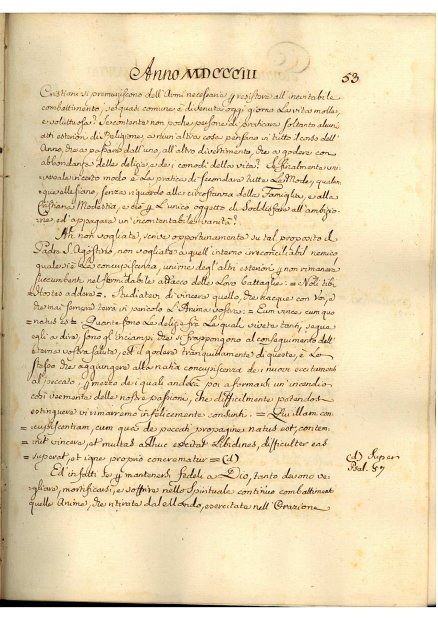 Anno MDCCCIII
53
Cristiani si premuniscono dell'Armi necessarie p resistere all'inevitabile
combattimento, se quasi comune è divenuta oggi giorno la vita molle,
e voluttuosa? Se contente non poche persone di praticare soltanto alcuni
atti esteriori di Religione, a niun'altra cosa pensano in tutto il corso dell'
Anno, che a passare dall'uno, all'altro divertimento, che a godere con
abbondanza delle delizie, e dei comodi della vita? Se finalmente uni-
versale in certo modo è la pratica di secondare tutte le Mode, qualun-
que elle siano, senza riguardo alle circostanze delle Famiglie, e alla
Cristiana Modestia, e ciò p l'unico oggetto di soddisfare all'ambizio-
ne, ed appagare un'incontentabile vanità?
Ah non vogliate, scrive opportunamente a tal proposito il
Padre S. Agostino, non vogliate a quell'interno irreconciliabil nemico
quale si è la concupiscenza, unirne degl'altri esteriori p non rimanere
succumbenti nel formidabile attacco delle loro battaglie = Noli tibi
hostes addere = Studiatevi di vincere quello, che nacque con Voi, e
che mai sempre terrà in pericolo l'Anima vostra = Eum vince cum quo
natus es = Quante sono le delizie fra le quali vivete tanti, segue
egli a dire, sono gl'inciampi che si frappongono al conseguimento dell'
eterna vostra salute, ed il godere tranquillamente di queste, è lo
stesso che aggiungere alla natia concupiscenza dei nuovi eccitamenti
al peccato, p mezzo dei quali andrà poi a formarsi un'incendio
così veemente delle nostre passioni, che difficilmente potendosi
estinguere vi rimarremo infelicemente consunti = Qui illam con-
= cupiscentiam, cum qua de peccati propagine natus est, contem-
= nit vincere, et multas adhuc excitat libidines, difficulter eas
= superat, et igne proprio concrematur = (d)
(d) Super
Psal. 57
Ed infatti se p mantenersi fedeli a Dio, tanto devono ve-
gliare, mortificarsi, e soffrire nello Spirituale continuo combattimento
quelle Anime, che ritirate dal Mondo, esercitate nell'Orazione